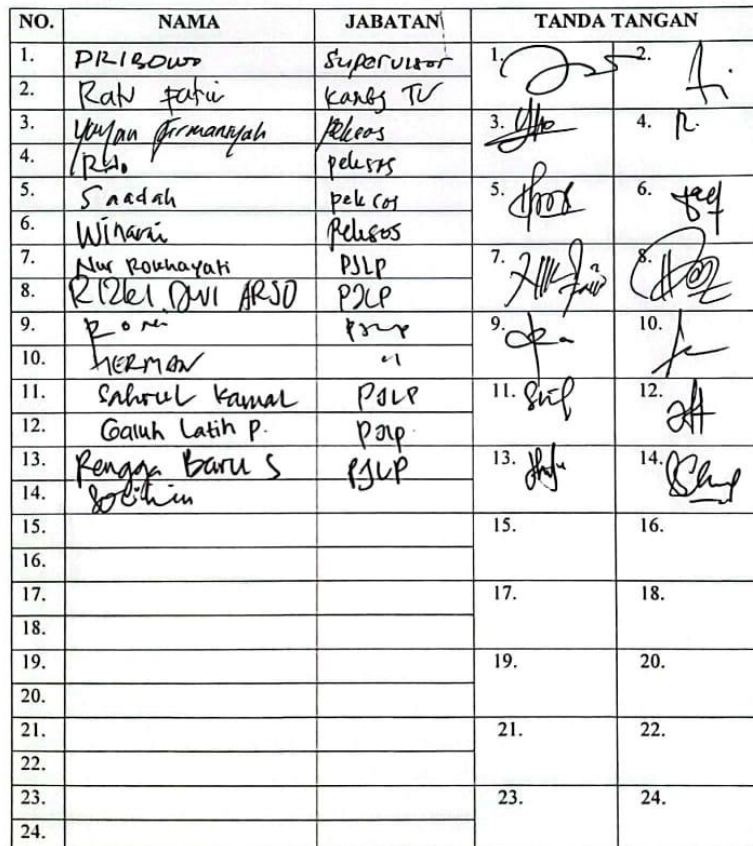 NO. NAMA JABATAN TANDA TANGAN
1. PRIBOWO Supervisor 1. 2.
2. Ratu Fatu
3. Yayan Firmansyah Peksos 3. 4. R.
4. RH. peksos
5. Saadah peksos 5. 6.
6. Winarni Peksos
7. Nur Rokhayati PJLP 7. 8.
8. RIZKI DWI ARSO PJLP
9. Roni PJLP 9. 10.
10. HERMAN "
11. Sahrul Kamal PJLP 11. 12.
12. Galuh Latih P. PJLP
13. Rengga Baru S PJLP 13. 14.
14. Solihin
15. 15. 16.
16.
17. 17. 18.
18.
19. 19. 20.
20.
21. 21. 22.
22.
23. 23. 24.
24.